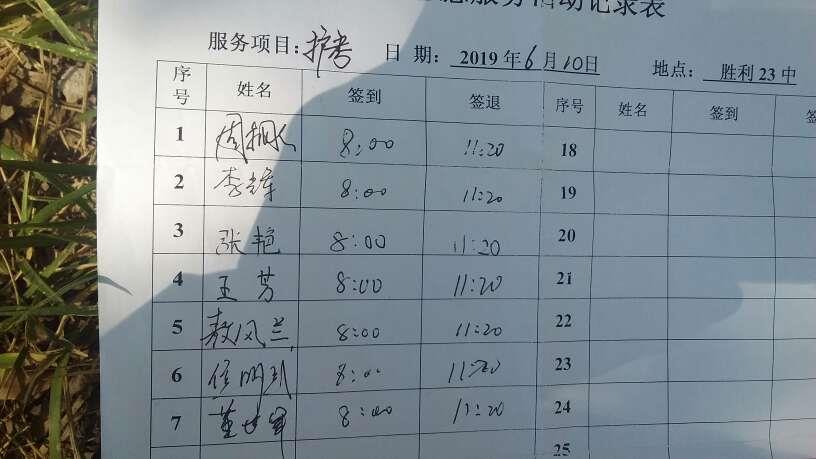 服务活动记录表
服务项目: 护考 日 期: 2019 年 6 月 10 日 地点: 胜利 23 中
序号 姓名 签到 签退 序号 姓名 签到 签
1 8:00 11:20 18
2 李辉 8:00 11:20 19
3 张艳 8:00 11:20 20
4 王芳 8:00 11:20 21
5 敖风兰 8:00 11:20 22
6 8:00 11:20 23
7 董 8:00 11:20 24
25